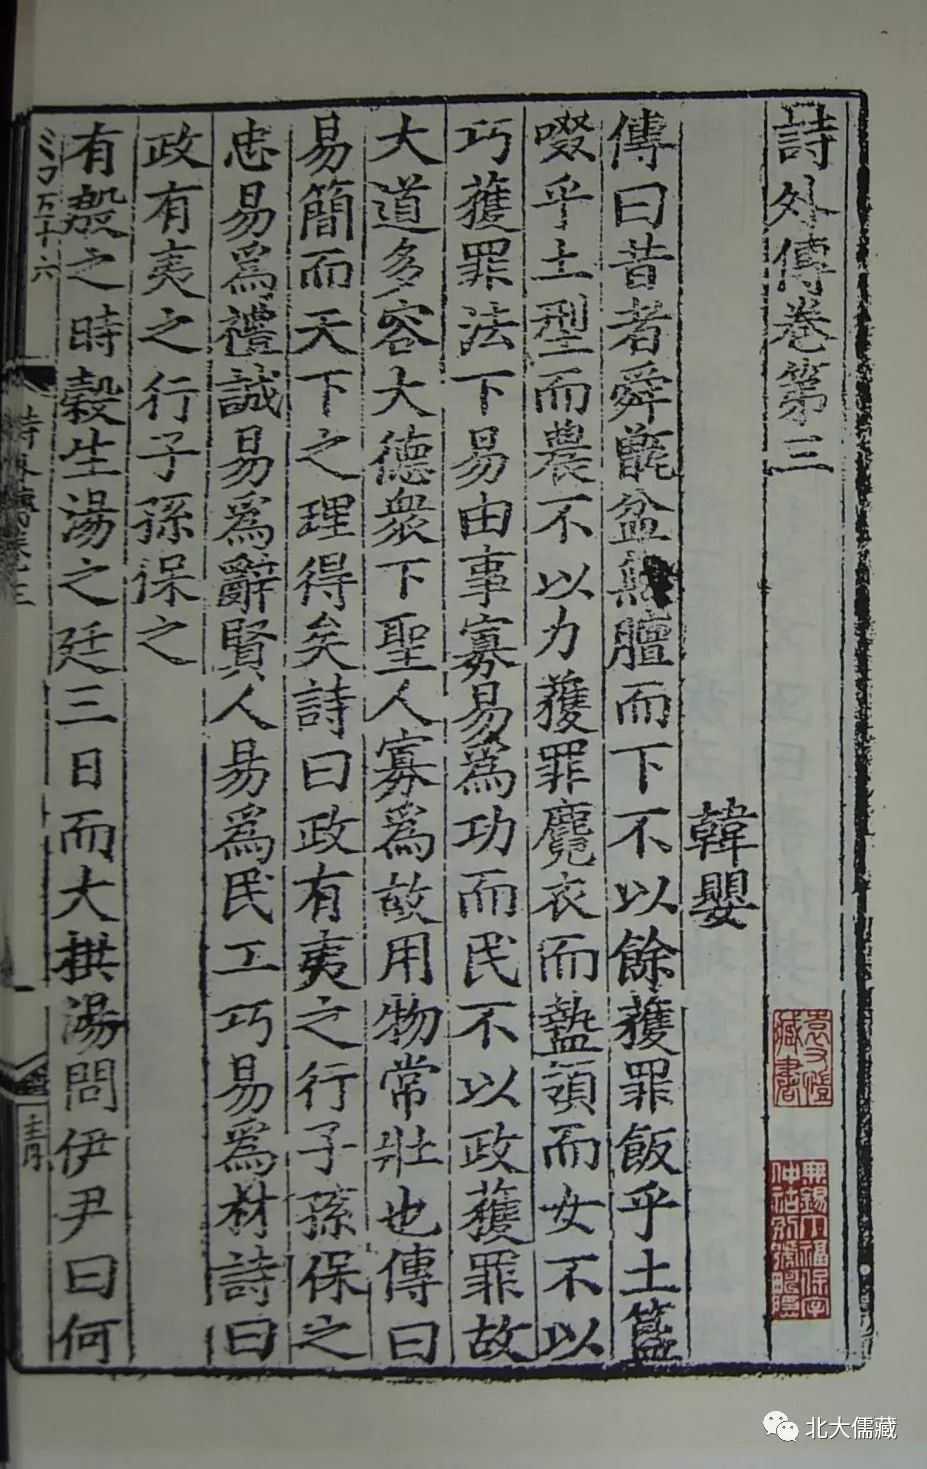 詩外傳卷第三
韓嬰
傳曰昔者舜甑盆無膻而下不以餘獲罪飯乎土簋
啜乎土型而農不以力獲罪麑衣而盩領而女不以
巧獲罪法下易由事寡易為功而民不以政獲罪故
大道多容大德衆下聖人寡爲故用物常壯也傳曰
易簡而天下之理得矣詩曰政有夷之行子孫保之
忠易爲禮誠易爲辭賢人易爲民工巧易爲材詩曰
政有夷之行子孫保之
有殷之時榖生湯之廷三日而大拱湯問伊尹曰何
詩外傳卷三
袁又愷
藏書
無錫丁福保字
仲祜別號疇隱
北大儒藏